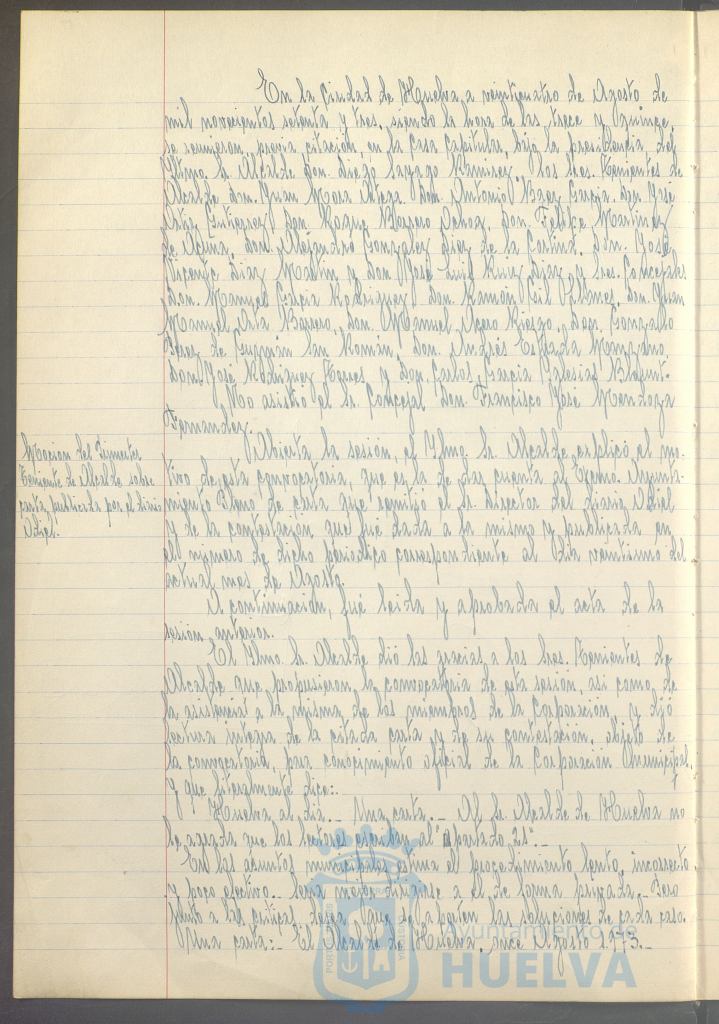 En la Ciudad de Huelva, a veinticuatro de Agosto de
mil novecientos setenta y tres, siendo la hora de las trece y quince,
se reunieron, previa citación, en la Casa Capitular, bajo la presidencia del
Iltmo. Sr. Alcalde don Diego Sayago Ramirez los Sres. Tenientes de
Alcalde don Juan Mora Ortega, don Antonio Baez Garcia, don José
Ortiz Gutierrez, don Roque Barrero Ochoa, don Felipe Martinez
de Acuña, don Alejandro Gonzalez Diaz de la Cortina, don José
Vicente Diaz Martin y don José Luis Ruiz Diaz y Sres. Concejales
don Manuel Garcia Rodriguez, don Ramón Gil Llanes, don Juan
Manuel Barrero, don Manuel Acero Riesgo, don Gonzalo
Perez de Guzmán San Román, don Andrés Estrada Manzano,
don José Rodriguez Torres y don Carlos Garcia Yglesias Blount.
No asistió el Sr. Concejal don Francisco José Mendoza
Fernandez.
Mocion del Primer
Teniente de Alcalde sobre
carta publicada por el diario
Odiel.
Abierta la sesión, el Iltmo. Sr. Alcalde explicó el mo-
tivo de esta convocatoria, que es la de dar cuenta al Excmo. Ayunta-
miento Pleno de carta que remitió el Sr. Director del diario Odiel
y de la contestación que fué dada a la misma y publicada en
el número de dicho periodico correspondiente al dia veintiuno del
actual mes de Agosto.
A continuación, fué leida y aprobada el acta de la
sesión anterior.
El Iltmo. Sr. Alcalde dió las gracias a los Sres. Tenientes de
Alcalde que propusieron la convocatoria de esta sesión, asi como de
la asistencia a la misma de los miembros de la Corporación, y dió
lectura integra de la citada carta y de su contestación, objeto de
la convocatoria, para conocimiento oficial de la Corporación Municipal,
y que literalmente dice:.
Huelva al dia.- Una carta.- Al Sr. Alcalde de Huelva no
le agrada que los lectores escriban al "apartado 21".-
En los asuntos municipales estima el procedimiento lento, incorrecto
y poco efectivo.- Seria mejor dirigirse a él de forma privada.- Pero
junto a las criticas, desea que se aporten las soluciones de cada caso.
Una carta:- El Alcalde de Huelva, once Agosto 1.973.-
Ayuntamiento de
HUELVA